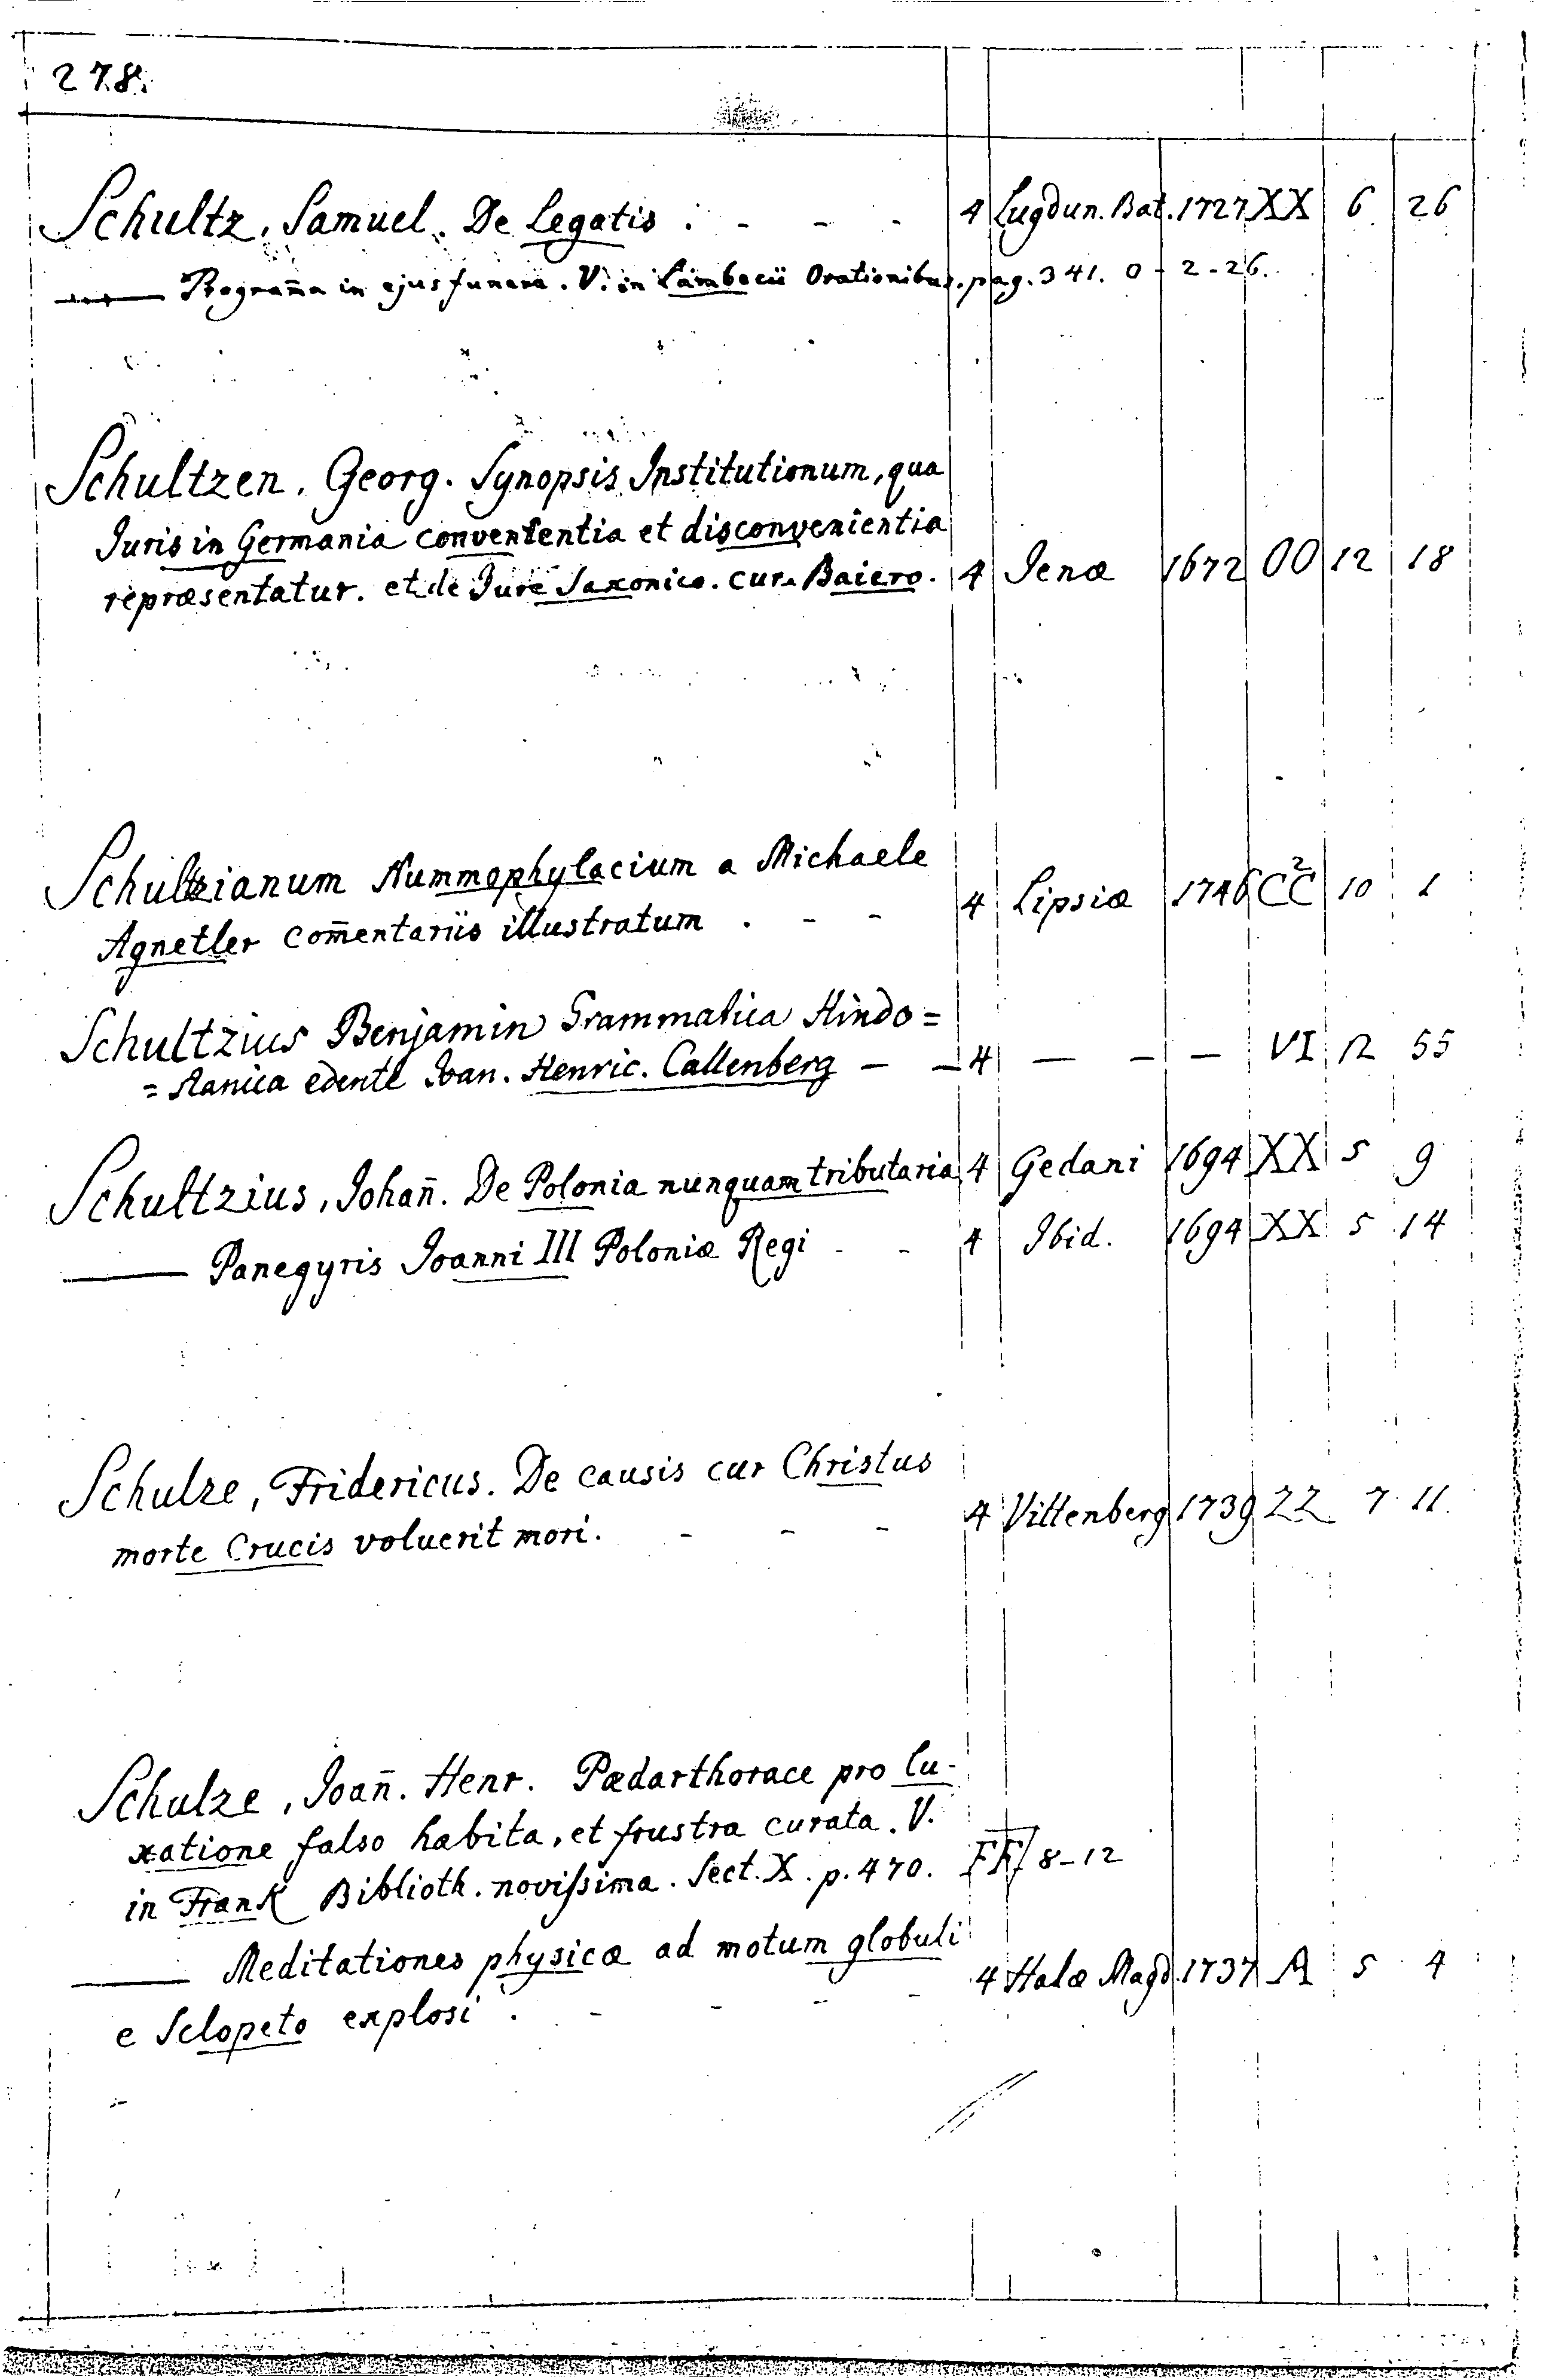 278.
Schultz, Samuel. De Legatis . - - - 4 Lugdun. Bat. 1727 XX 6 26
—— Program̄a in ejus funere. V. in Lambecii Orationibus. pag. 341. O - 2 - 26.
Schultzen, Georg. Synopsis Institutionum, qua
Juris in Germania convenientia et disconvenientia
repræsentatur. et de Jure Saxonico. cur. Baiero. 4 Jenæ 1672 OO 12 18
Schultzianum Nummophylacium a Michaele
Agnetler com̄entariis illustratum . - - 4 Lipsiæ 1746 CC² 10 1
Schultzius Benjamin Grammatica Hindo=
=stanica edente Joan. Henric. Callenberg — — 4 — — — VI 12 55
Schultzius, Johan̄. De Polonia nunquam tributaria 4 Gedani 1694 XX 5 9
—— Panegyris Joanni III Poloniæ Regi - - 4 Ibid. 1694 XX 5 14
Schulze, Fridericus. De causis cur Christus
morte Crucis voluerit mori. - - - 4 Vittenberg 1739 ZZ 7 11.
Schulze, Joan̄. Henr. Pædarthorace pro lu-
xatione falso habita, et frustra curata. V.
in Frank Biblioth. novissima. Sect. X. p. 470. FF 8-12
—— Meditationes physicæ ad motum globuli
e Sclopeto explosi . - - - - 4 Halæ Magd. 1737 A 5 4